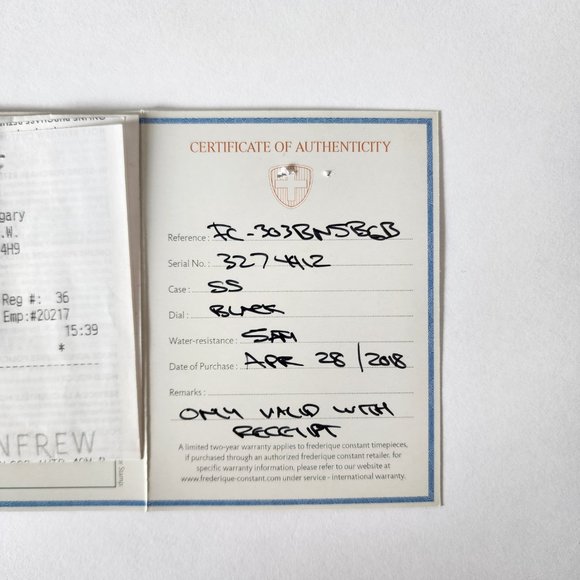 gary
.W.
4H9
Reg #: 36
Emp:#20217
15:39
*
NFREW
CERTIFICATE OF AUTHENTICITY
Reference: FC-303BN5B6B
Serial No.: 3274412
Case: SS
Dial: BLACK
Water-resistance: 5ATM
Date of Purchase: APR 28/2018
Remarks:
ONLY VALID WITH
RECEIPT
A limited two-year warranty applies to frederique constant timepieces,
if purchased through an authorized frederique constant retailer. for
specific warranty information, please refer to our website at
www.frederique-constant.com under service - international warranty.